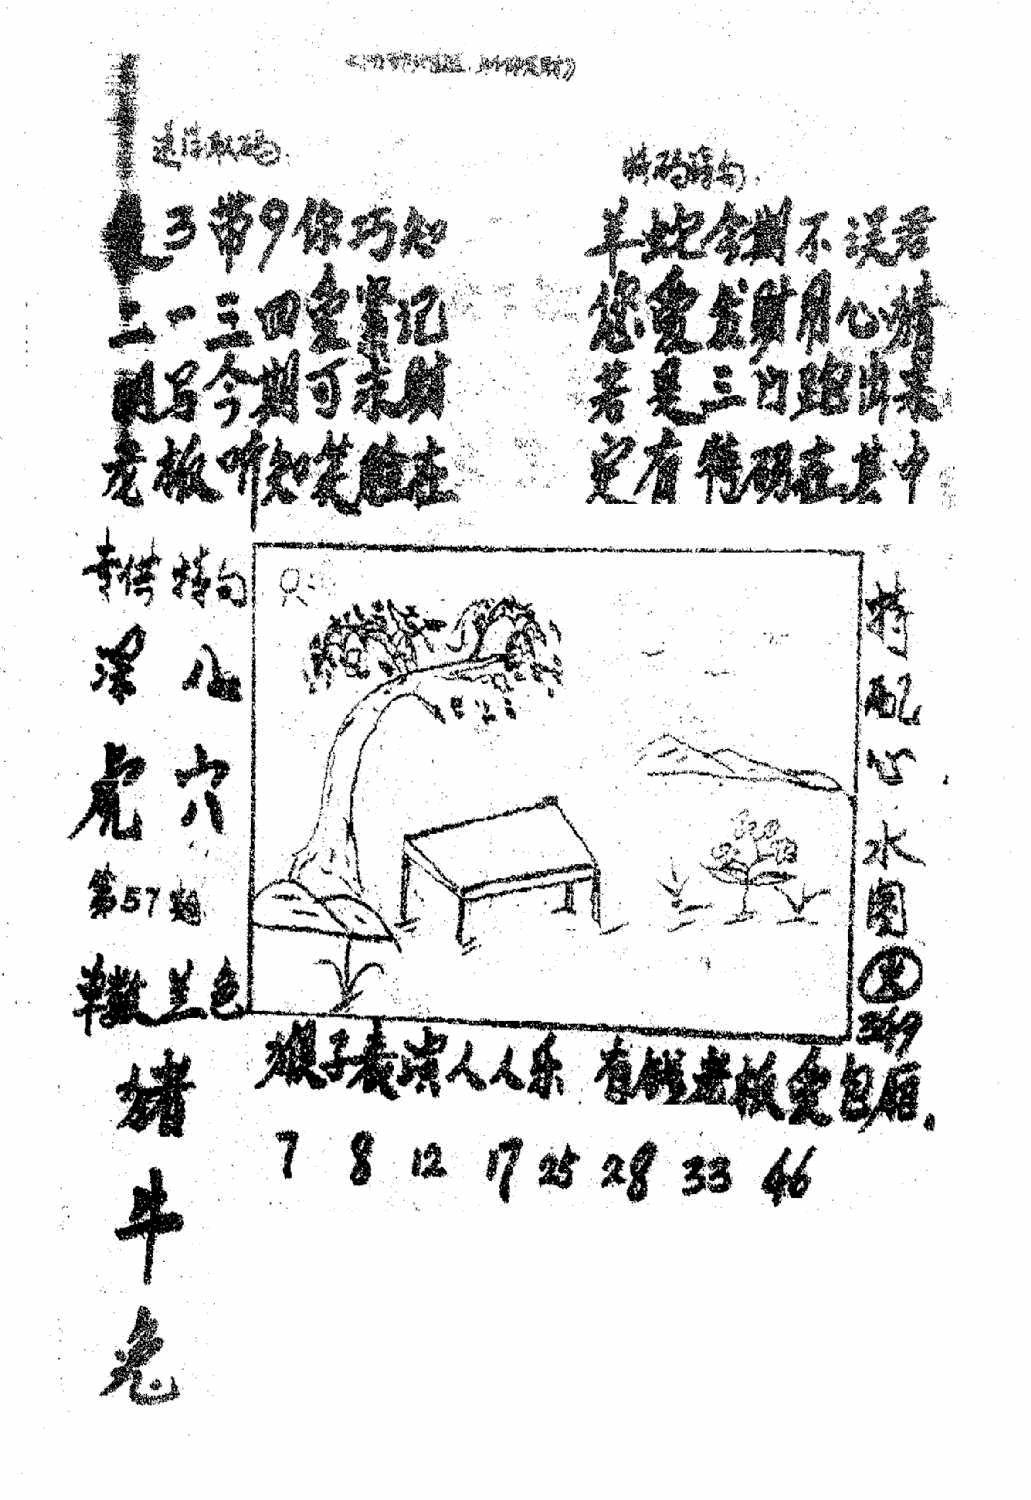 3带9你巧知
二一三四免常记
明写今期可求财
老板听知笑在
特码诗句
羊蛇今期不误君
您要发财用心猜
若是三门跑出来
定有特码在其中
专供特句
深入
虎穴
第57期
单数兰色
猪
牛
兔
特配心水图
349
猴子表演人人乐 有钱老板爱包厢.
7 8 12 17 25 28 33 46